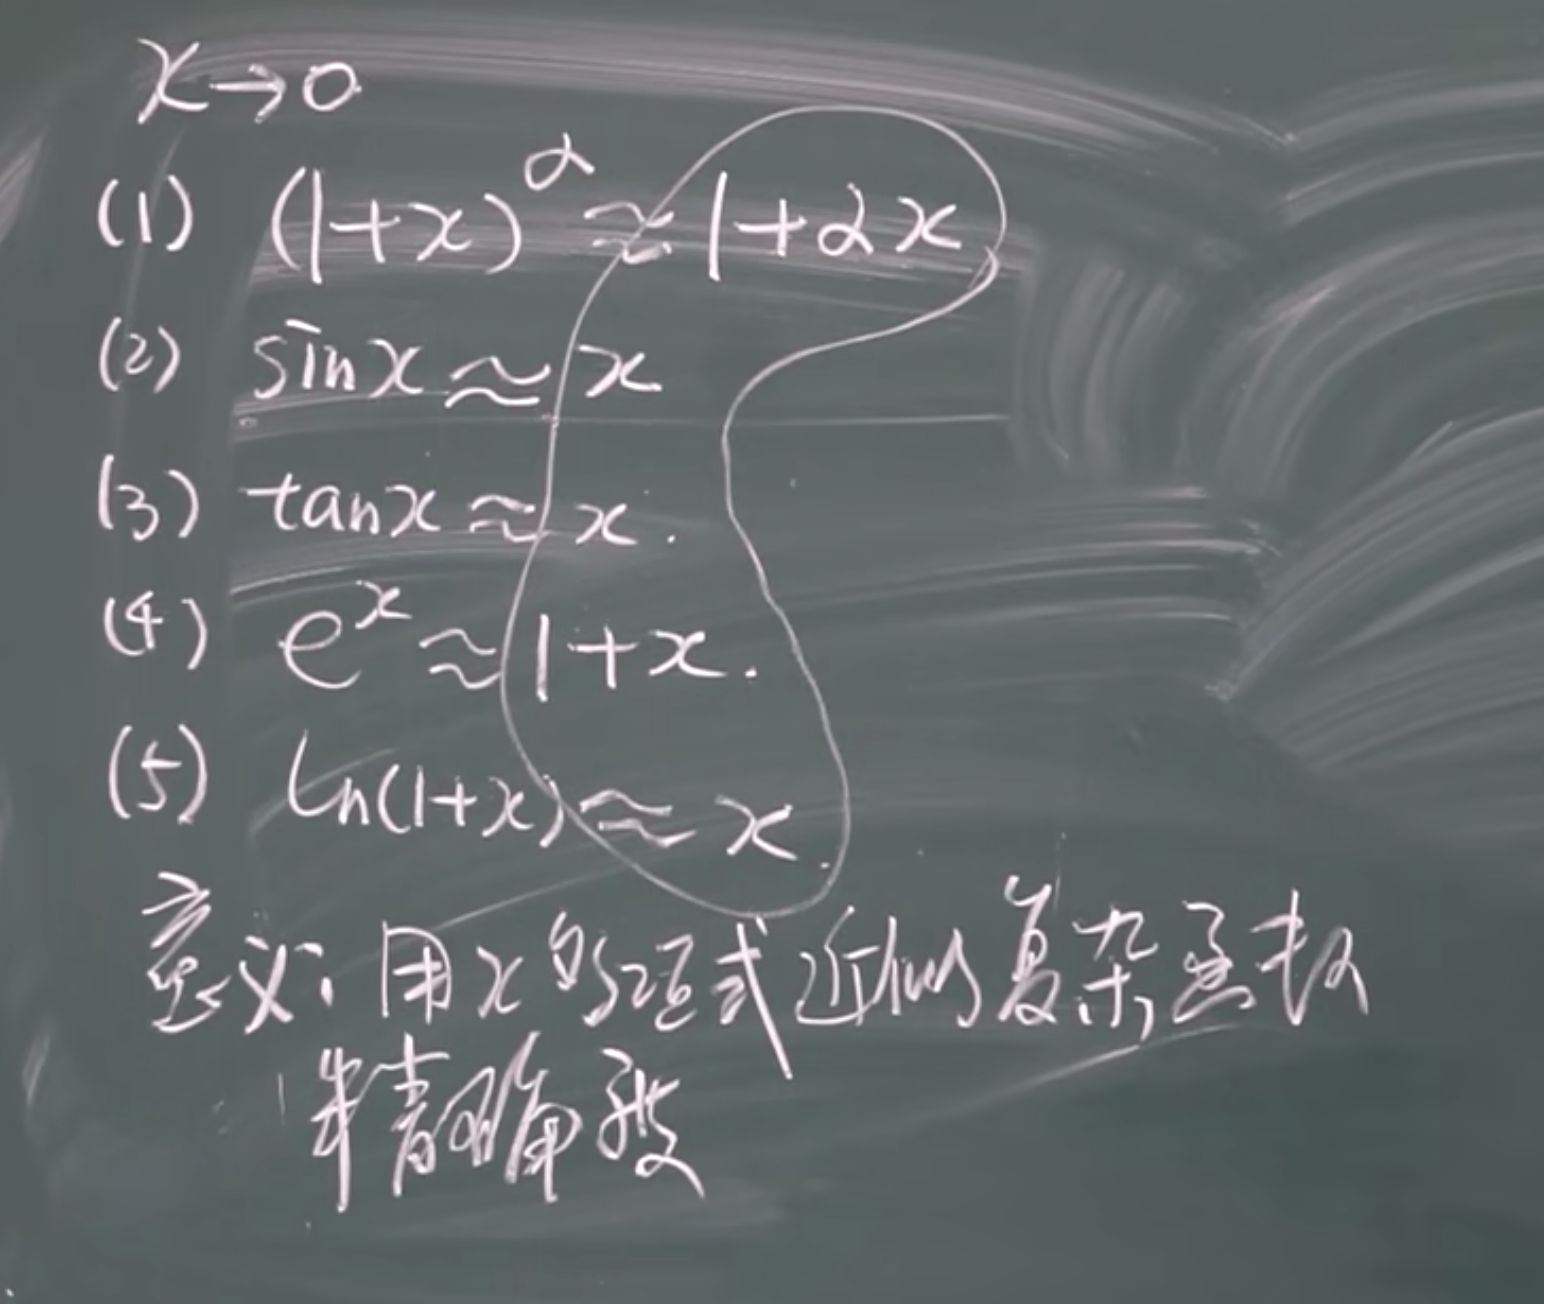 x→0
(1) (1+x)^α ≈ 1+αx
(2) sinx ≈ x
(3) tanx ≈ x.
(4) e^x ≈ 1+x.
(5) ln(1+x) ≈ x.
意义: 用x的 式近似复杂函数
精确度